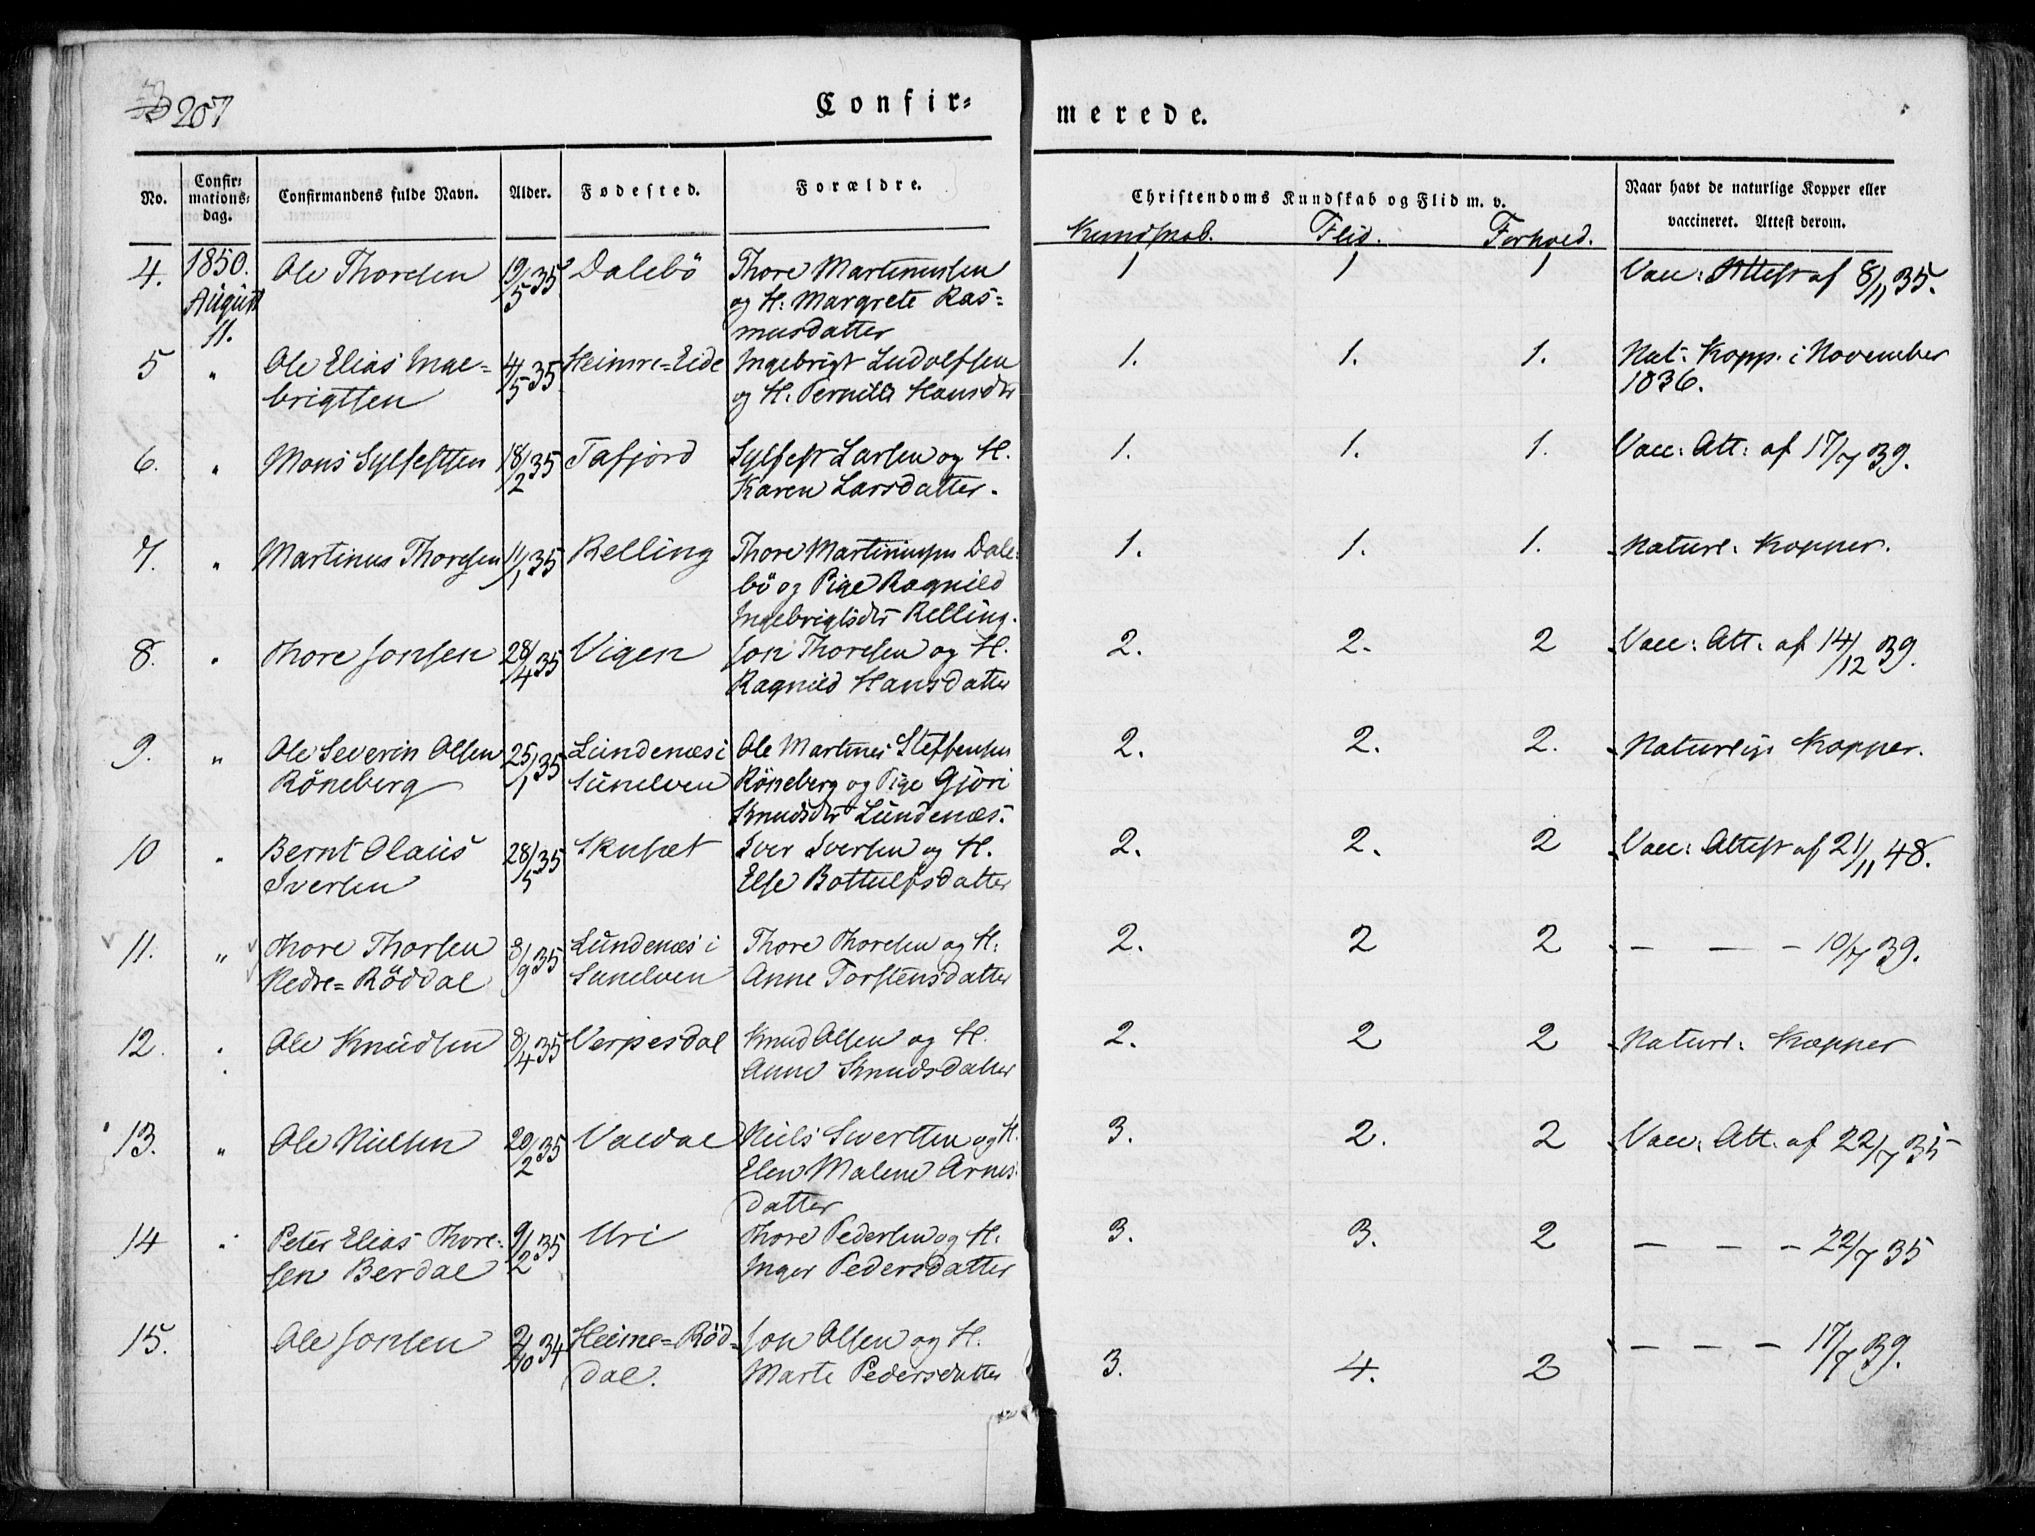 207
Confir-
merede.
No.
Confir-
mations-
dag.
Confirmandens fulde Navn.
Alder.
Fødested.
Forældre.
Christendoms Kundskab og Flid m. v.
Kundskab. Flid. Forhold.
Naar havt de naturlige Kopper eller
vaccineret. Attest derom.
4. 1850. Ole Thoresen 19/5 35 Dalebö Thore Martinussen 1 1 1 Vac: Attest af 8/11 35.
August og H: Margrete Ras=
11. musdatter
5 " Ole Elias Inge= 4/5 35 Heimre=Eide Ingebrigt Ludolfsen 1. 1. 1. Nat: Kopp. i November
brigtsen og H. Pernille Hansdtr 1836.
6. " Mons Sylfestsen 18/2 35 Tafjord Sylfest Larsen og H. 1. 1. 1. Vac: Att: af 17/7 39.
Karen Larsdatter.
7. " Martinus Thoresen 11/1 35 Relling Thore Martinussen Dale= 1. 1. 1. Naturl: Kopper.
bö og Pige Ragnild
Ingebrigtsdtr Relling.
8. " Thore Jonsen 28/4 35 Vigen Jon Thoresen og H. 2. 2. 2 Vac: Att: af 14/12 39.
Ragnild Hansdatter
9. " Ole Severin Olsen 25/1 35 Lundenæs i Ole Martines Steffensen 2. 2. 2. Naturlige Kopper.
Röneberg Sunelven Röneberg og Pige Gjöri
Knudsdtr Lundenæs.
10 " Bernt Olaus 28/5 35 Skuset Iver Iversen og H. 2. 2. 2 Vac: Attest af 21/11 48.
Iversen Else Bottulfsdatter
11. " Thore Thorsen 3/9 35 Lundenæs i Thore Thoresen og H. 2. 2 2 — — — 10/7 39.
Nedre=Röddal Sunelven Anne Torstensdatter
12. " Ole Knudsen 8/4 35 Verpesdal Knud Olsen og H. 2. 2 2 Naturl: Kopper
Anne Knudsdatter
13. " Ole Nielsen 20/2 35 Valdal Niels Sivertsen og H. 3. 2. 2 Vac: Att. af 22/7 35
Elen Malene Arnes=
datter
14 " Peter Elias Thore= 9/2 35 Uri Thore Pedersen og H. 3. 3. 2 — — — 22/7 35
sen Berdal Inger Pedersdatter
15. Ole Jonsen 2/10 34 Heime=Röd= Jon Olsen og H. 3. 4. 2 — — — 17/7 39.
dal. Marte Pedersdatter